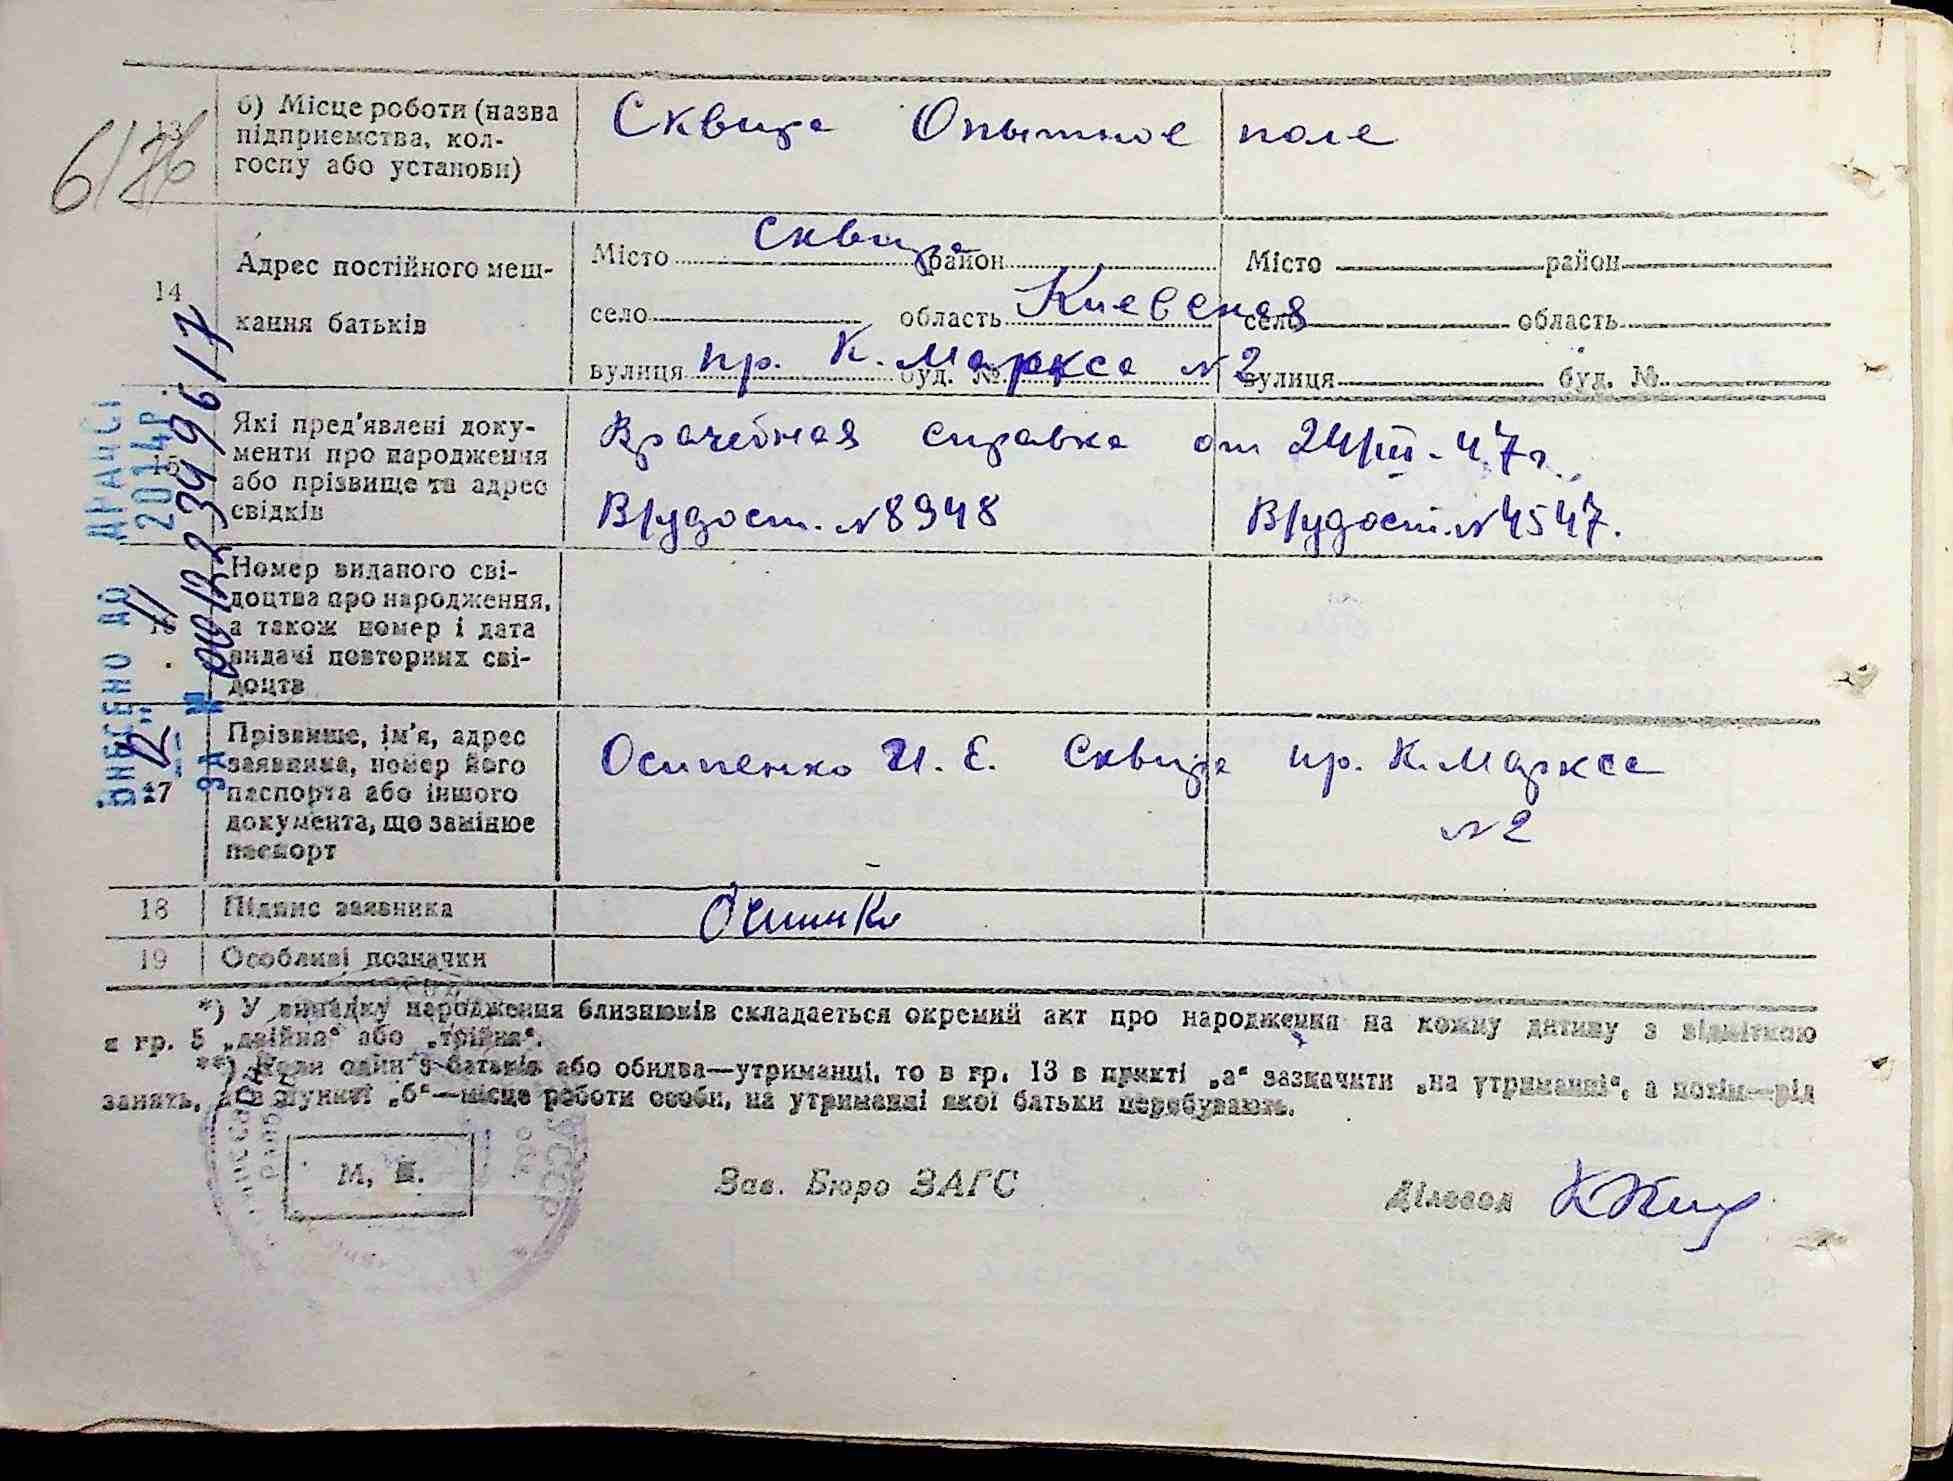 б) Місце роботи (назва
13
підприємства, кол-
госпу або установи)
Сквира Опытное поле
6/7б
Адрес постійного меш-
14
кання батьків
Місто Сквира район
село область Киевская
вулиця пр. К. Маркса буд. № N 2
Місто район
село область
вулиця буд. №
Які пред'явлені доку-
менти про народження
15
або прізвище та адрес
свідків
Врачебная справка от 24/III-47г.
В/удост. N 8948
В/удост. N 4547.
Номер виданого сві-
доцтва про народження,
16
а також номер і дата
видачі повторних сві-
доцтв
Прізвище, ім'я, адрес
заявника, номер його
17
паспорта або іншого
документа, що замінює
паспорт
Осипенко И. Е. Сквира пр. К. Маркса
N 2
18 Підпис заявника
19 Особливі позначки
*) У випадку народження близнюків складається окремий акт про народження на кожну дитину з відміткою
в гр. 5 „двійня“ або „трійня“.
**) Коли один з батьків або обидва—утриманці, то в гр. 13 в пункті „а“ зазначити „на утриманні“, а потім—рід
занять, а в пункті „б“—місце роботи особи, на утриманні якої батьки перебувають.
М. П.
Зав. Бюро ЗАГС
Діловод
ВНЕСЕНО ДО ДРАЦСГ
12 11 2014р.
ЗА № 00122349617